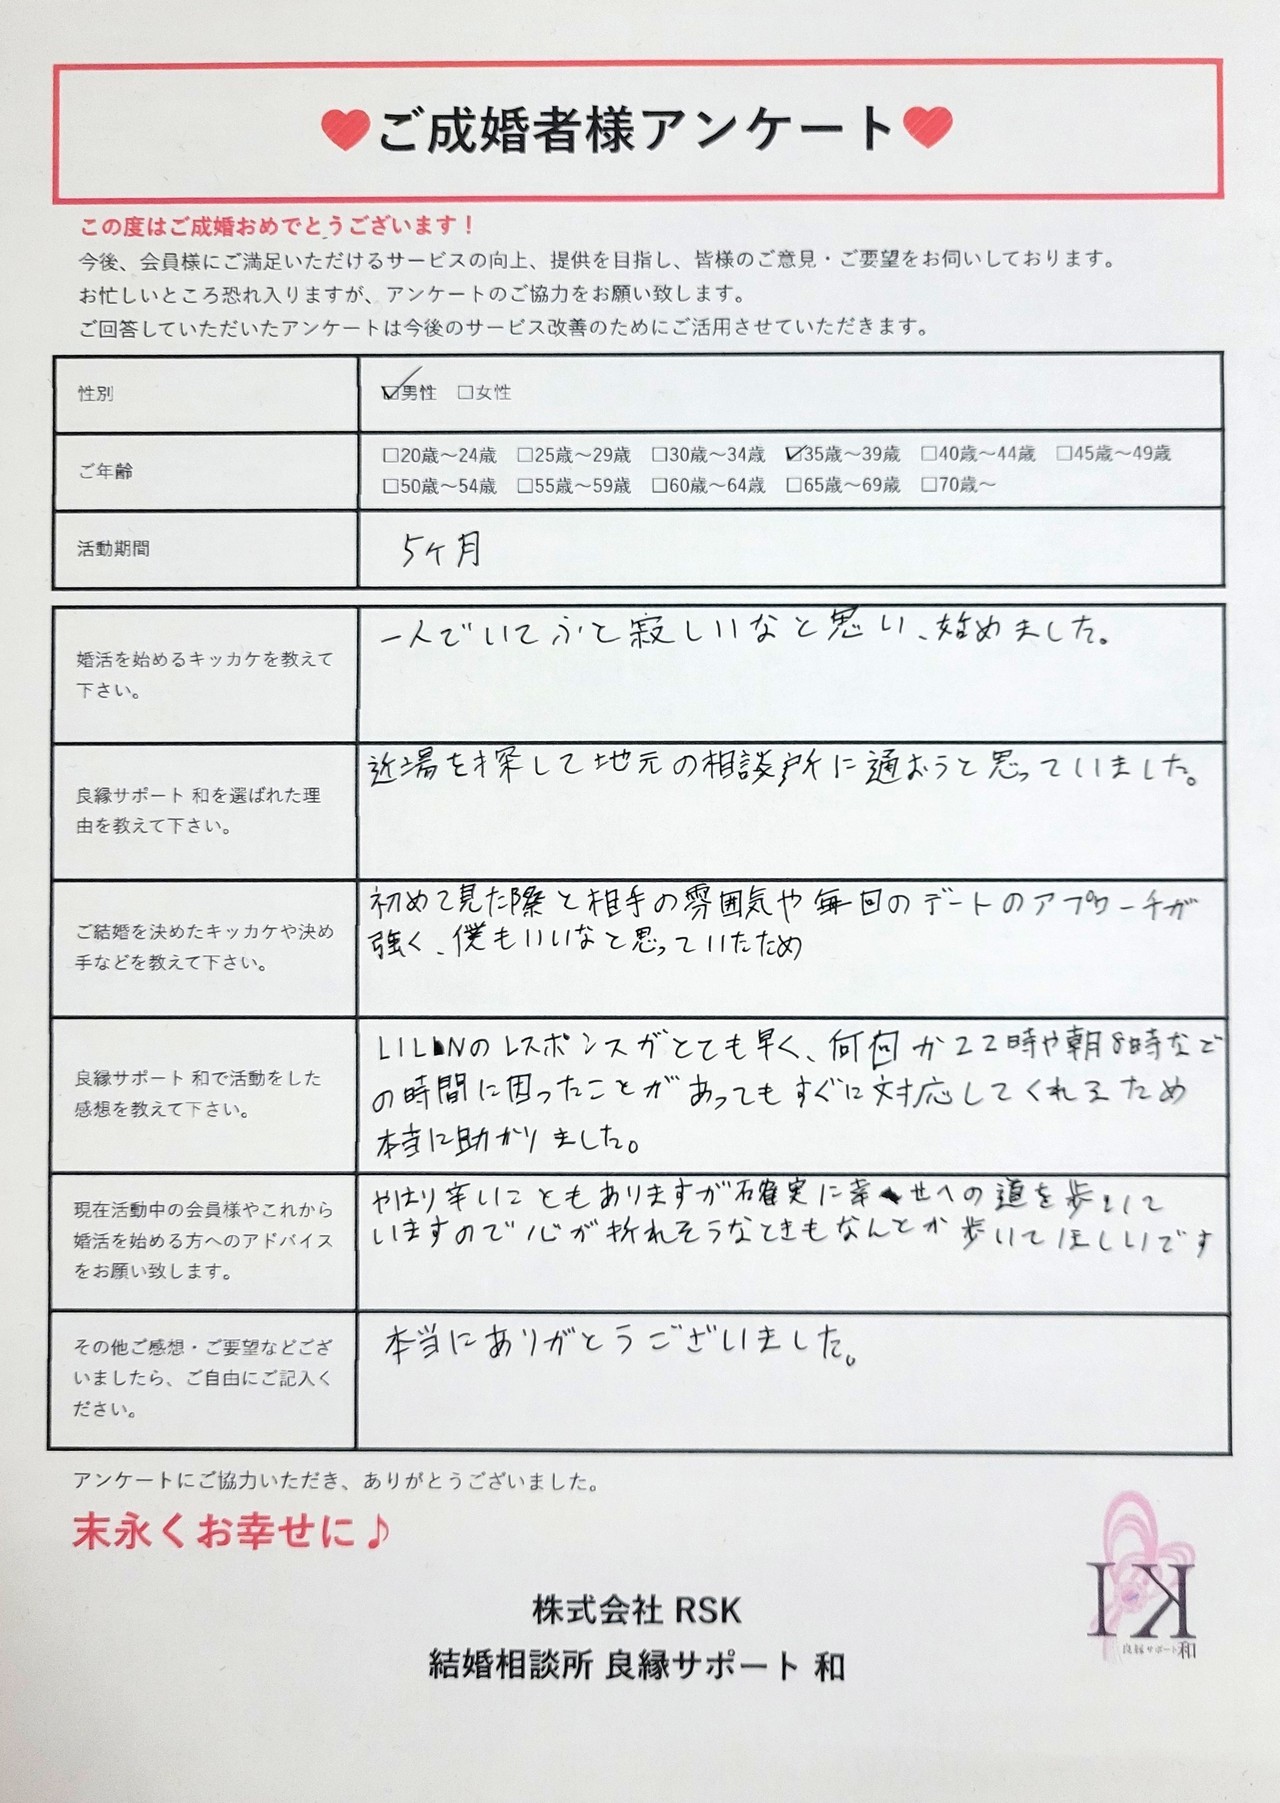 ご成婚者様アンケート
この度はご成婚おめでとうございます！
今後、会員様にご満足いただけるサービスの向上、提供を目指し、皆様のご意見・ご要望をお伺いしております。
お忙しいところ恐れ入りますが、アンケートのご協力をお願い致します。
ご回答していただいたアンケートは今後のサービス改善のためにご活用させていただきます。
性別
☑男性 □女性
ご年齢
□20歳～24歳 □25歳～29歳 □30歳～34歳 ☑35歳～39歳 □40歳～44歳 □45歳～49歳
□50歳～54歳 □55歳～59歳 □60歳～64歳 □65歳～69歳 □70歳～
活動期間
5ヶ月
婚活を始めるキッカケを教えて
下さい。
一人でいてふと寂しいなと思い、始めました。
良縁サポート 和を選ばれた理
由を教えて下さい。
近場を探して地元の相談所に通おうと思っていました。
ご結婚を決めたキッカケや決め
手などを教えて下さい。
初めて見た際と相手の雰囲気や毎回のデートのアプローチが
強く、僕もいいなと思っていたため
良縁サポート 和で活動をした
感想を教えて下さい。
LINのレスポンスがとても早く、何回か22時や朝8時など
の時間に困ったことがあってもすぐに対応してくれるため
本当に助かりました。
現在活動中の会員様やこれから
婚活を始める方へのアドバイス
をお願い致します。
やはり辛いこともありますが確実に幸せへの道を歩いて
いますので心が折れそうなときもなんとか歩いてほしいです
その他ご感想・ご要望などござ
いましたら、ご自由にご記入く
ださい。
本当にありがとうございました。
アンケートにご協力いただき、ありがとうございました。
末永くお幸せに♪
株式会社 RSK
結婚相談所 良縁サポート 和
良縁サポート和